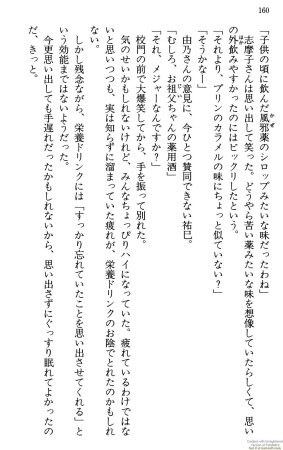 160
「子供の頃に飲んだ風邪薬のシロップみたいな味だったわね」
志摩子さんは思い出して笑った。どうやら苦い薬みたいな味を想像していたらしくて、思い
の外飲みやすかったのにはビックリしたという。
「それより、プリンのカラメルの味にちょっと似ていない？」
「そうかなー」
由乃さんの意見に、今ひとつ賛同できない祐巳。
「むしろ、お祖父ちゃんの薬用酒」
「それ、メジャーなんですか？」
校門の前で大爆笑してから、手を振って別れた。
気のせいかもしれないけれど、みんなちょっぴりハイになっていた。疲れているわけではな
いと思いつつも、実は知らずに溜まっていた疲れが、栄養ドリンクのお陰でとれたのかもしれ
ない。
しかし残念ながら、栄養ドリンクには「すっかり忘れていたことを思い出させてくれる」と
いう効能まではないようだった。
今更思い出しても手遅れだったかもしれないから、思い出さずにぐっすり眠れてよかったの
だ、きっと。